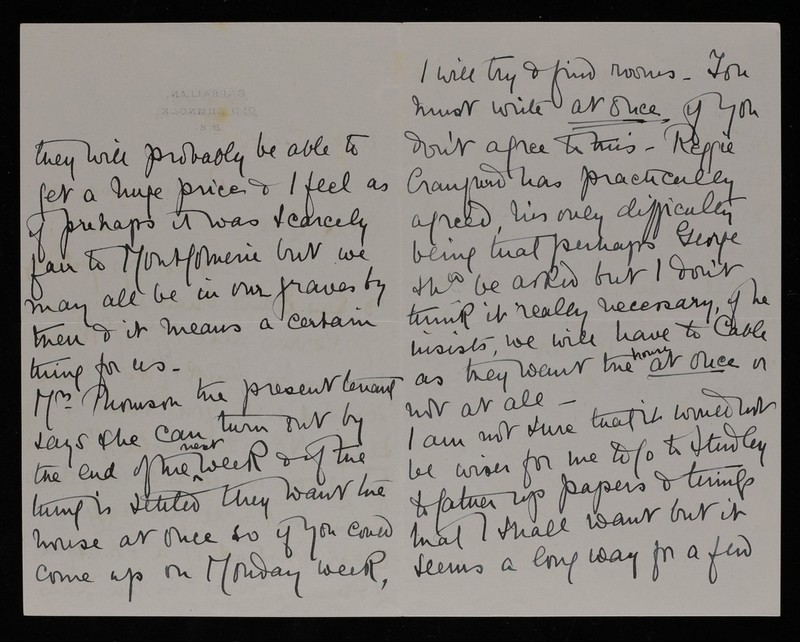 they will probably be able to
get a huge price & I feel as
if prehaps it was scarcely
fair to Montgomerie but we
may all be in our graves by
then & it means a certain
thing for us -
Mrs. Thomson the present tenant
says she can turn out by
the end of the next week & if the
thing is settled they want the
house at once so if you could
come up on Monday week,
I will try & find rooms - You
must write at once, if you
don't agree to this - Reggie
Craufurd has practically
agreed, his only difficulty
being that perhaps George
shd. be asked but I don't
think it really necessary, if he
insists, we will have to Cable
as they want the house at once or
not at all -
I am not sure that it would not
be wiser for me to go to Studley
& gather up papers & things
that I shall want but it
seems a long way for a few